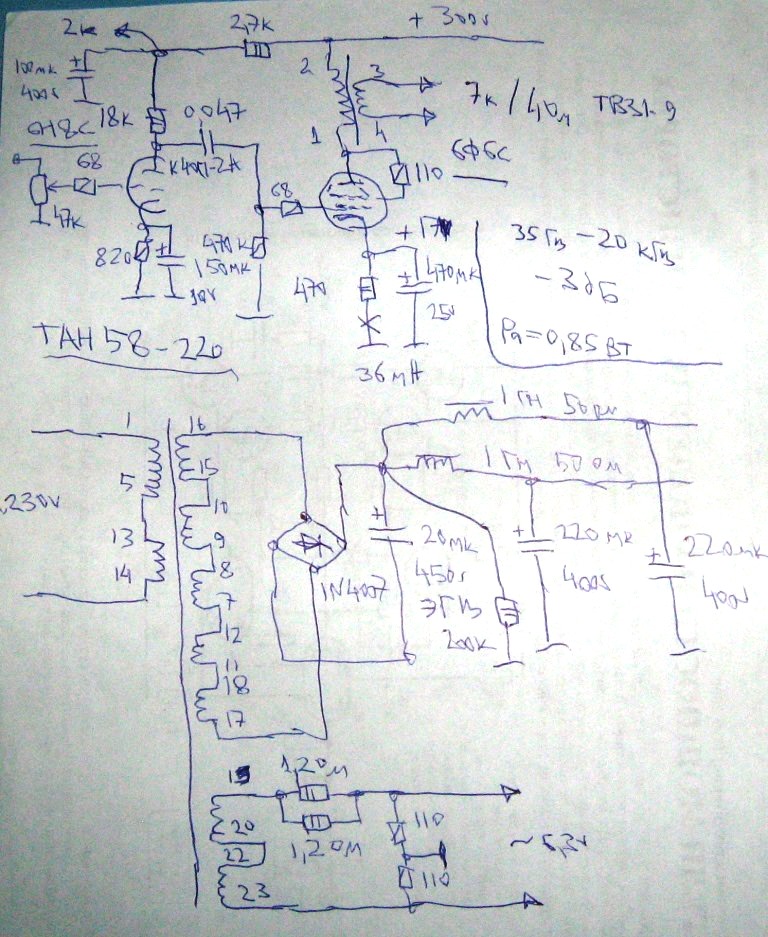 2к 2,7к + 300v
100мк
400v
2 3
7к / 4Ом ТВ31-9
18К 0,047
1 4
6Н8С
К40П-2А 110 6Ф6С
68 68
47К
+17V
820 470К
150мк
10V
470 470мк
25v
36мА
35Гц - 20кГц
- 3дБ
Pа=0,85Вт
ТАН 58-220
1 16
1 Гн 50Ом
5 15
1 Гн 50 Ом
230v
10
13 9
14 8
7
12
11
18
17
1N4007
20мк
450v
ЭГЦ
200к
220мк
400v
220мк
400v
1,2Ом
20
1,2Ом
22
23
110
110
~ 6,3v